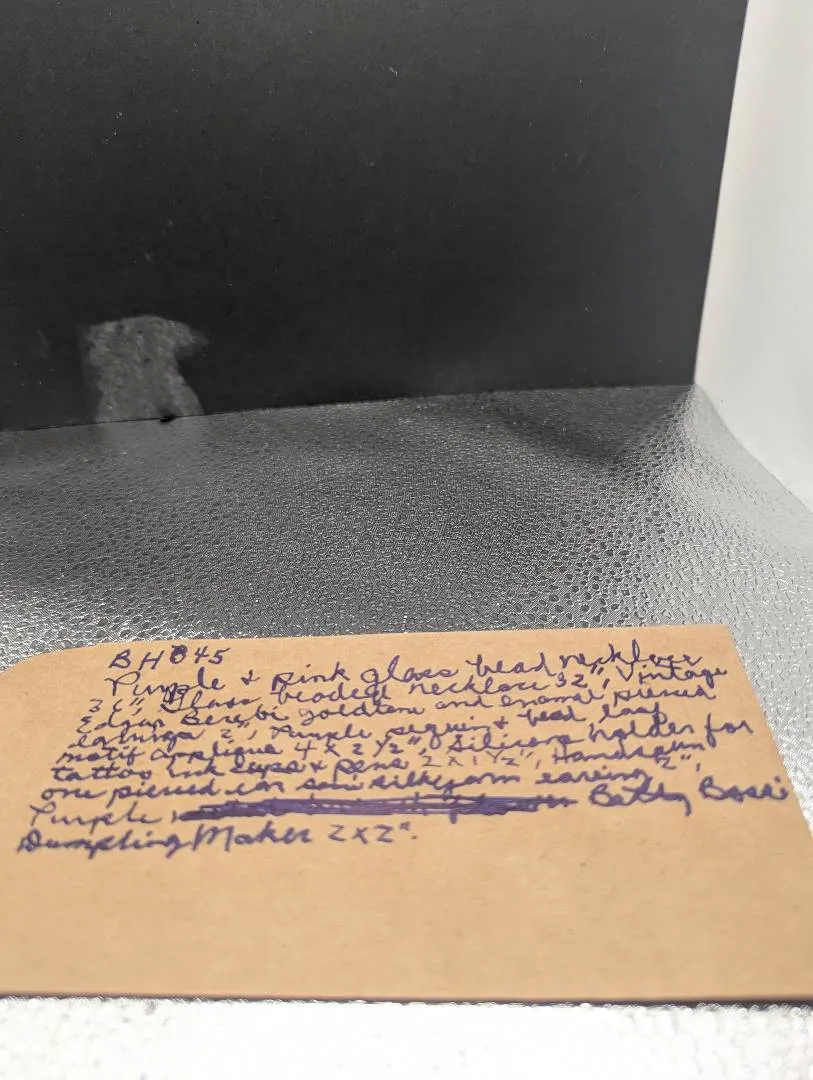 BH045
Purple & pink glass bead necklace
36", Glass beaded necklace 32", Vintage
Edgar Berebi goldtone and enamel pierced
earrings 2", Purple sequin & bead leaf
motif applique 4 x 2 1/2", Silicone holder for
tattoo ink cups & pens 2 x 1 1/2", Handspun
one pierced ear sari silk yarn earring 2",
Purple Betty Bossi
Dumpling Maker 2x2".